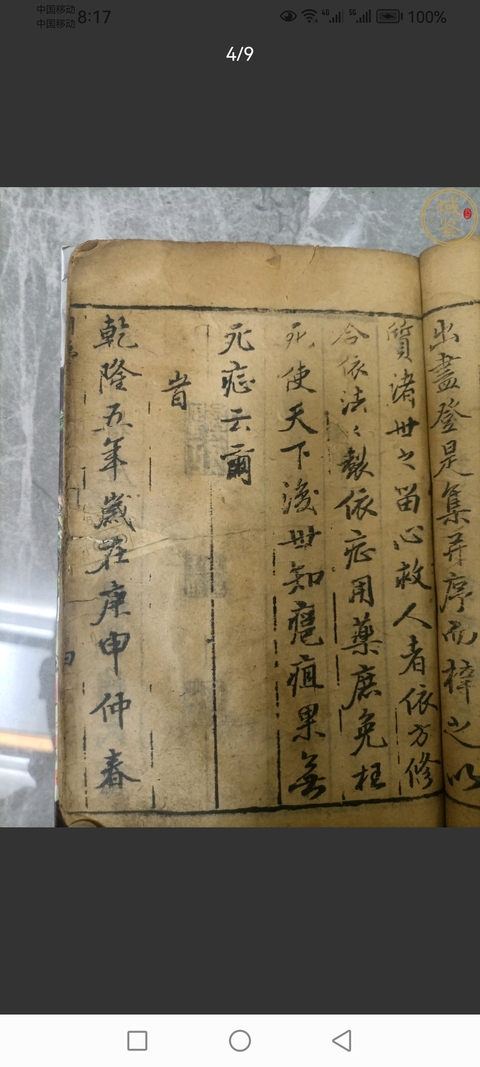 中国移动
中国移动
8:17
4G
5G
100%
4/9
出盡登是集并序而梓之以
質諸世之留心救人者依方修
合依法々製依症用藥庶免枉
死使天下後世知癰疽果無
死症云爾
昔
乾隆五年歲在庚申仲春